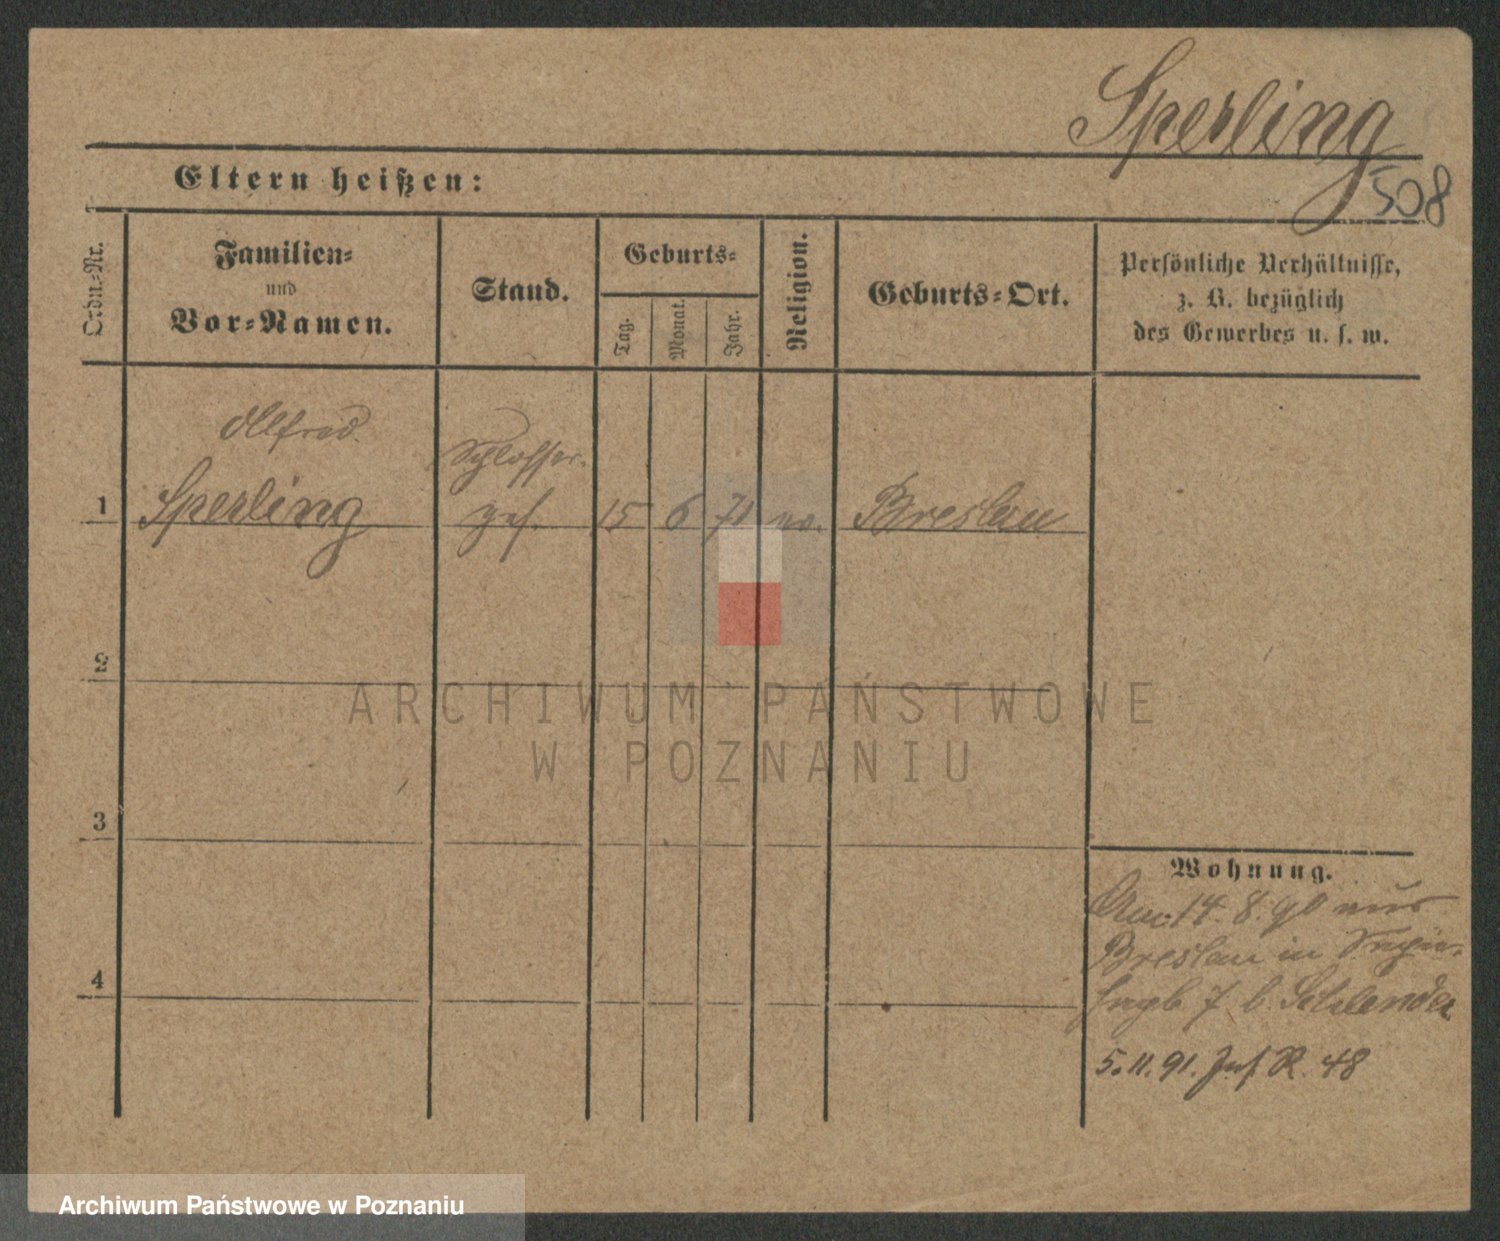 Sperling
508
Eltern heißen:
Ordn.=Nr.
Familien=
und
Vor=Namen.
Stand.
Geburts=
Tag.
Monat.
Jahr.
Religion.
Geburts=Ort.
Persönliche Verhältnisse,
z. B. bezüglich
des Gewerbes u. s. w.
Alfred
Schlosser-
1 Sperling ges. 15 6 71 ev. Breslau
2
3
4
Wohnung.
Am 14. 8. 90 aus
Breslau in
7 b. Schlender
5. 11. 91. Inf. R. 48
ARCHIWUM PAŃSTWOWE
W POZNANIU
Archiwum Państwowe w Poznaniu